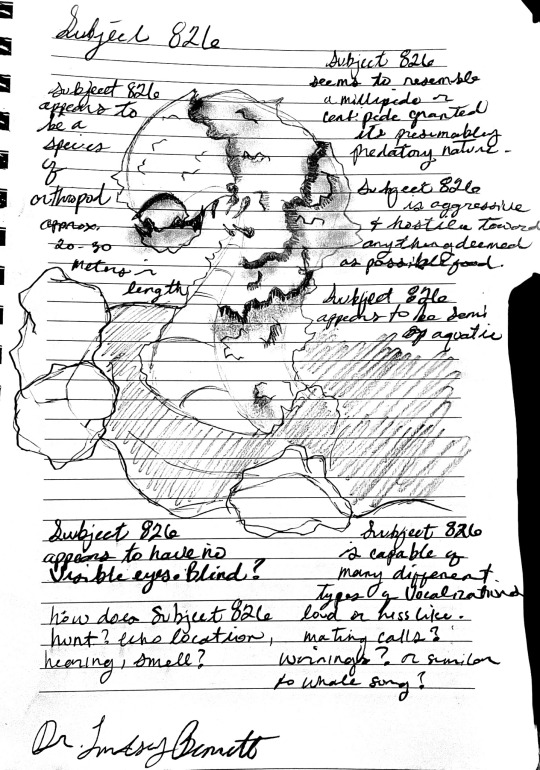 Subject 826
Subject 826
appears to
be a
species
of
orthopod
approx.
20-30
meters in
length
Subject 826
seems to resemble
a millipide or
centipide granted
its presumably
predatory nature.
Subject 826
is aggressive
& hostile toward
anything deemed
as possible food.
Subject 826
appears to be semi
aquatic
Subject 826
appears to have no
visible eyes. Blind?
how does Subject 826
hunt? echo location,
hearing, smell?
Subject 826
is capable of
many different
types of vocalizations
loud or hiss like.
mating calls?
warnings? or similar
to whale song?
Dr. Lindsey Bennett